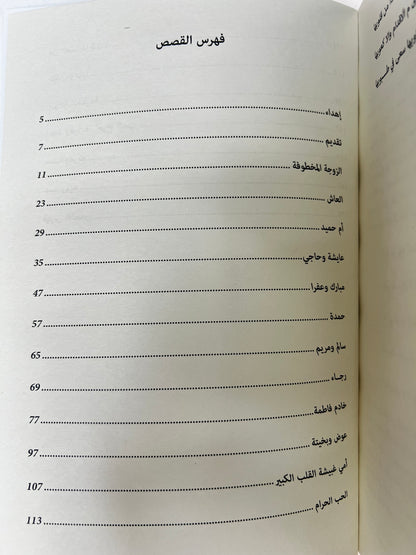 فهرس القصص
إهداء 5
تقديم 7
الزوجة المخطوفة 11
العاش 23
أم حميد 29
عايشة وحاجي 35
مبارك وعفرا 47
حمدة 57
سالم ومريم 65
رجاء 69
خادم فاطمة 77
عوض وبخيتة 97
أمي غبيشة القلب الكبير 107
الحب الحرام 113